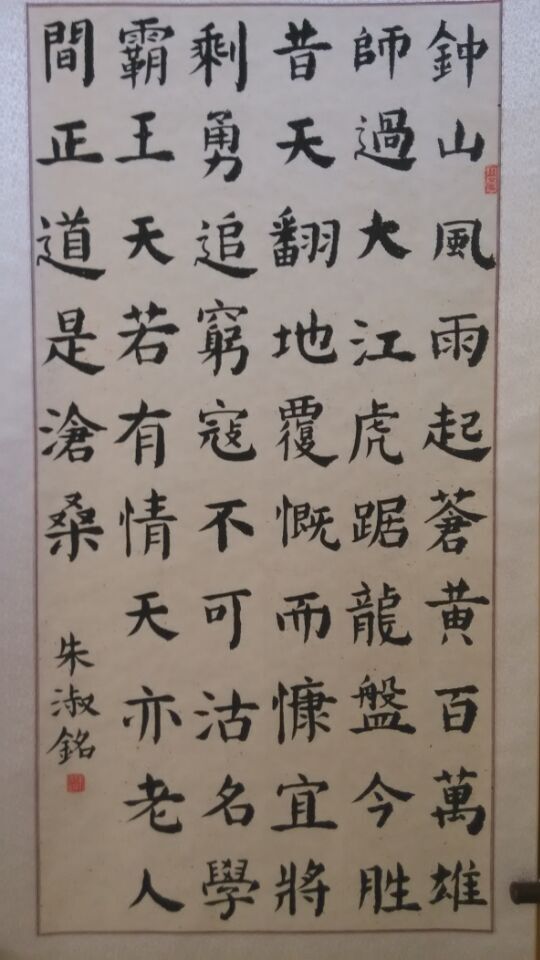 鈡山風雨起蒼黄百萬雄
師過大江虎踞龍盤今胜
昔天翻地覆慨而慷宜將
剩勇追窮寇不可沽名學
霸王天若有情天亦老人
間正道是滄桑
朱淑銘